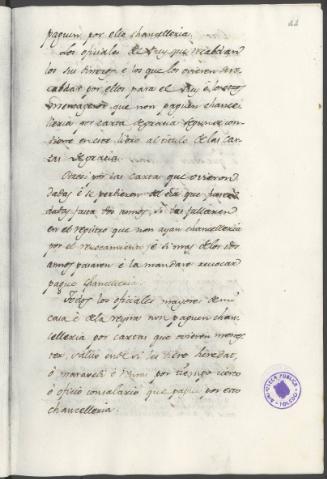 paguen por ella chancelleria.
Los oficiales de Rey que recabdan
los sus dineros e los que los ovieren de re
cabdar por ellos para el Rey e los otros
mensageros que non paguen chance
lleria por carta de gracia segunt con
tiene en este libro al titulo de las car
tas de gracia.
Otrosi por las cartas que ovieron
dadas e se perdieron del dia que fueren
dadas fasta dos annos, si las fallaren
en el registro que non ayan chancelleria
por el renovamiento, e si mas de los dos
annos pasaren e la mandare renovar
pague chancelleria.
Todos los oficiales mayores de mi
casa e de la reyna non paguen chan
celleria por cartas que ovieren menes
ter, salvo ende si les diero heredat,
o maravedi o por tiempo cierto
o oficio con salario que pague por esto
chancelleria.
BIBLIOTECA PUBLICA
TOLEDO